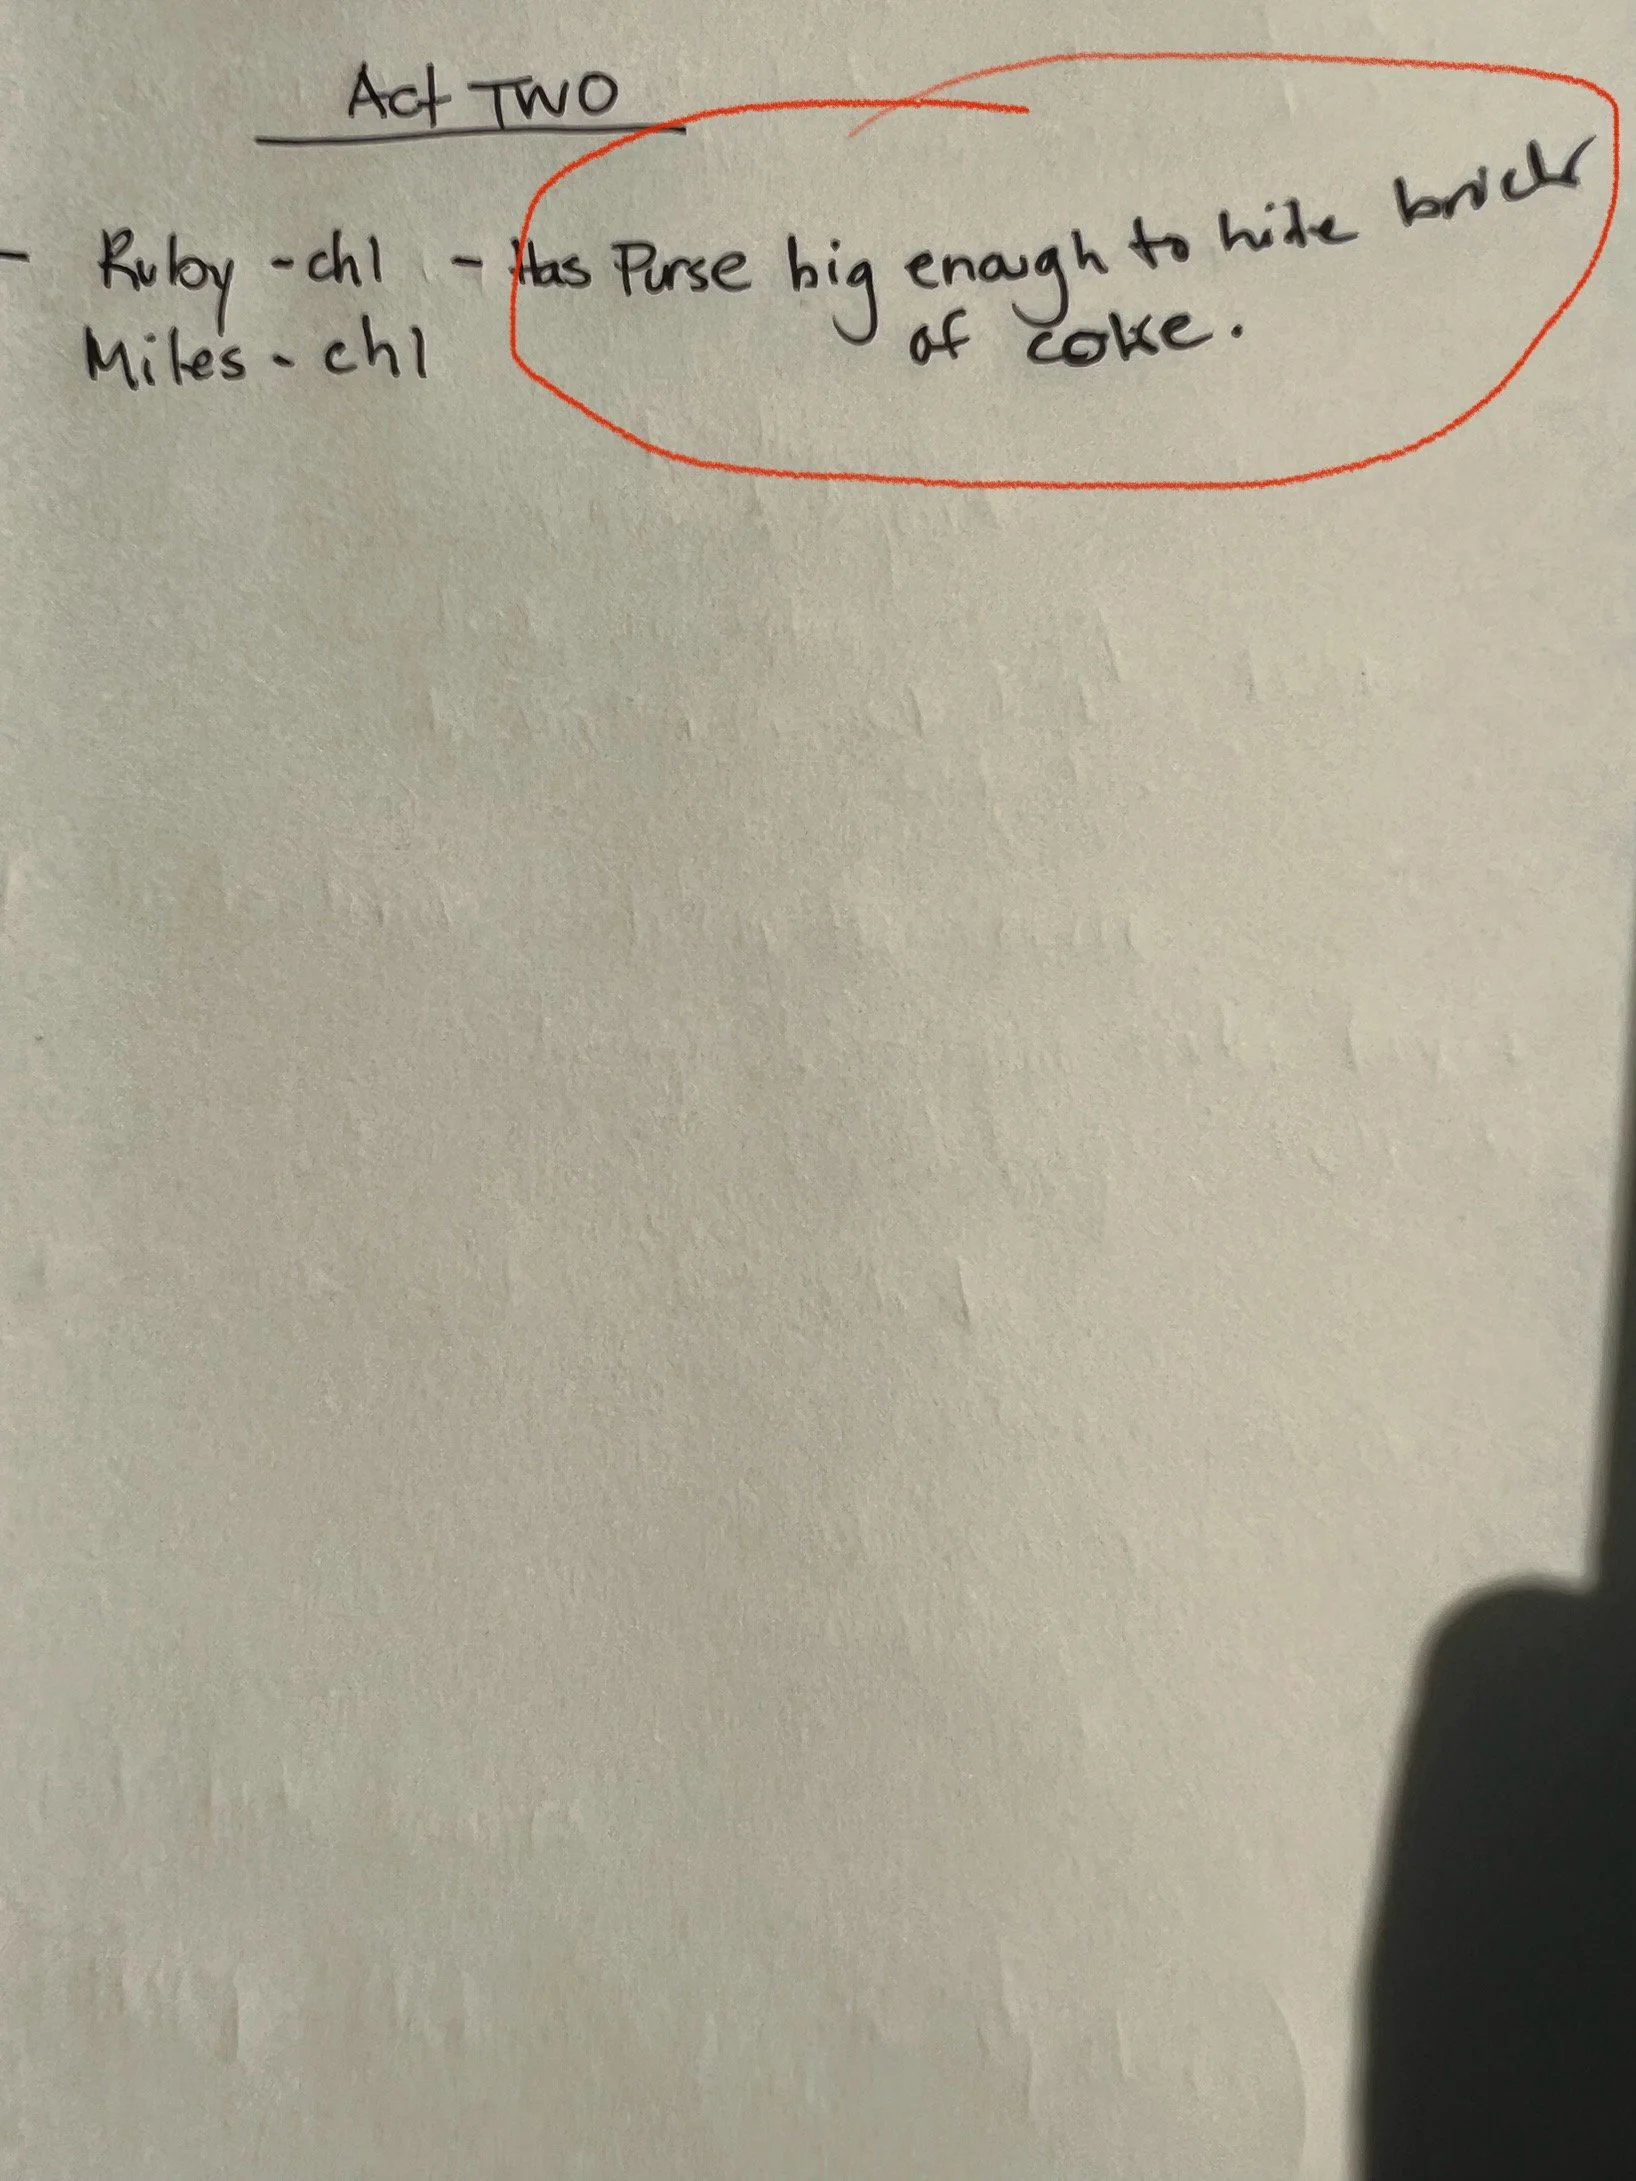 Act TWO
- Ruby - ch1 - Has Purse big enough to hide brick
Miles - ch1 of coke.